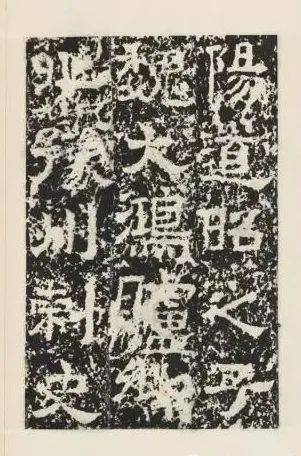 陽道昭之子
魏大鴻臚卿
北豫州刺史